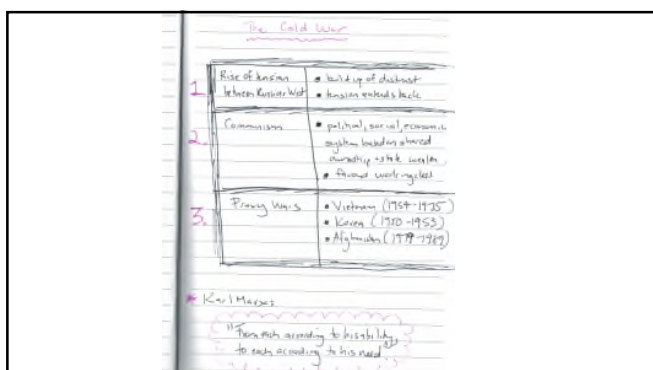 The Cold War
1.
Rise of tension
between Russia + West
• build up of distrust
• tension extends back
2.
Communism
• political, social, economic
system based on shared
ownership + state wealth
• favours working class
3.
Proxy Wars
• Vietnam (1954-1975)
• Korea (1950-1953)
• Afghanistan (1979-1989)
* Karl Marx
"From each acording to his ability,
to each acording to his need